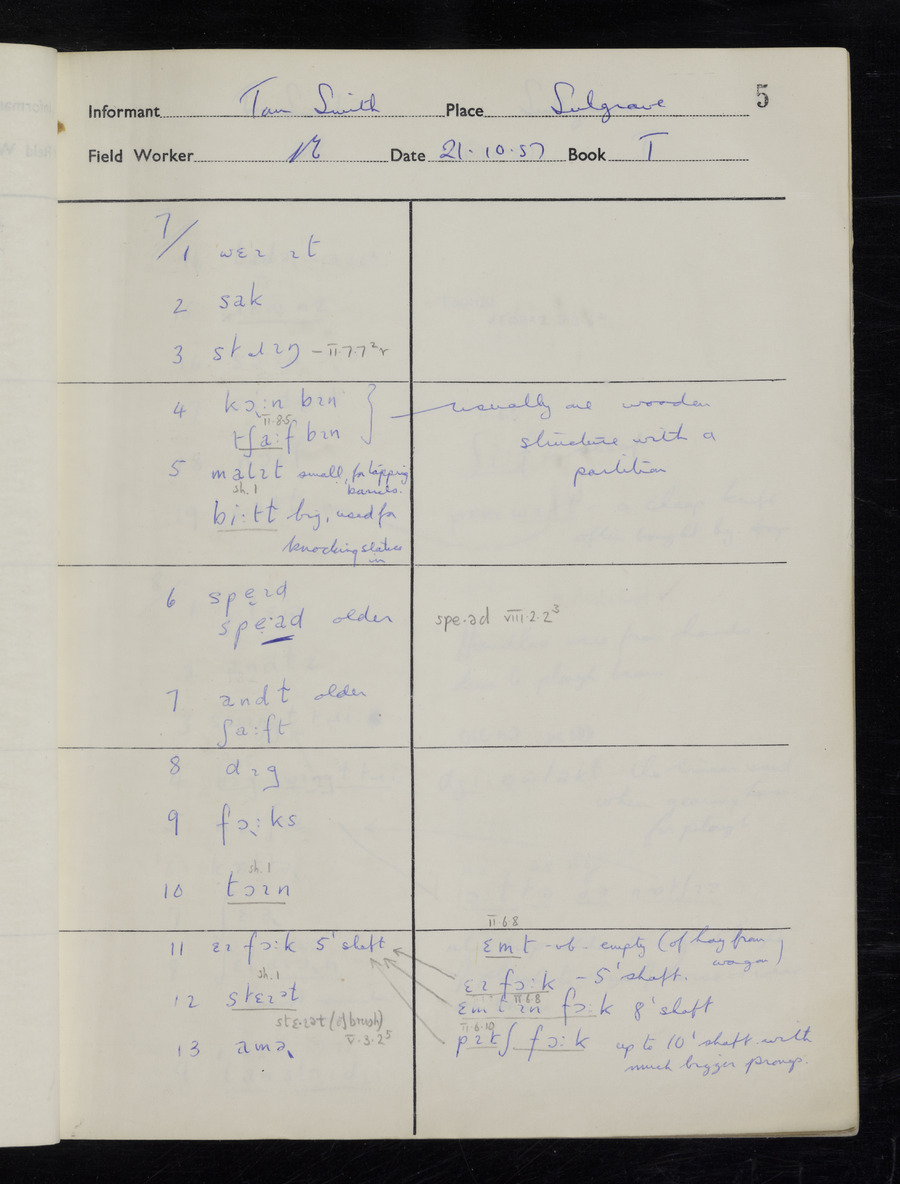 5
Informant Tom Smith Place Sulgrave
Field Worker Date 21.10.57 Book I
7/1 wɛɪ ɪt
2 sak
3 – II.7.7²r
4 kɔ̣:n bɪn usually one wooden
II.8.5
tʃa:f bɪn structure with a
partition
5 malɪt small, for tapping
barrels.
sh. 1
bi:tt big, used for
knocking stakes
in
6 spẹɪd
spẹ·əd older spe·ad VIII.2.2³
7 andt older
ʃa:ft
8 dɪg
9 fɔ̣:ks
sh. 1
10 tɔɪn
II.6.8
11 ɛɪ fɔ:k 5' shaft ɛmt – vb. empty (of hay from
wagon)
ɛɪ fɔ:k – 5' shaft.
sh. 1
12 stɛɪət ɛmt ɪn fɔ:k 8' shaft
II.6.8
stɛ·ɪət (of brush)
V.3.2⁵
II.6.10
13 amə pɪtʃ fɔ:k up to 10' shaft with
much bigger prongs.